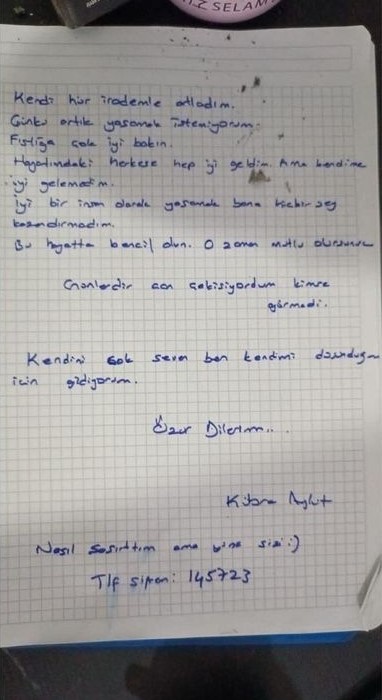 Z SELAM
Kendi hür irademle atladım.
Çünkü artık yaşamak istemiyorum.
Fıstığa çok iyi bakın.
Hayatımdaki herkese hep iyi geldim. Ama kendime
iyi gelemedim.
İyi bir insan olarak yaşamak bana hiçbir şey
kazandırmadım.
Bu hayatta bencil olun. O zaman mutlu olursunuz
Günlerdir can çekişiyordum kimse
görmedi.
Kendimi çok seven ben kendimi düşündüğüm
için gidiyorum.
Özür Dilerim..
Kübra Aykut
Nasıl şaşırttım ama yine sizi :)
Tlf şifrem: 145723